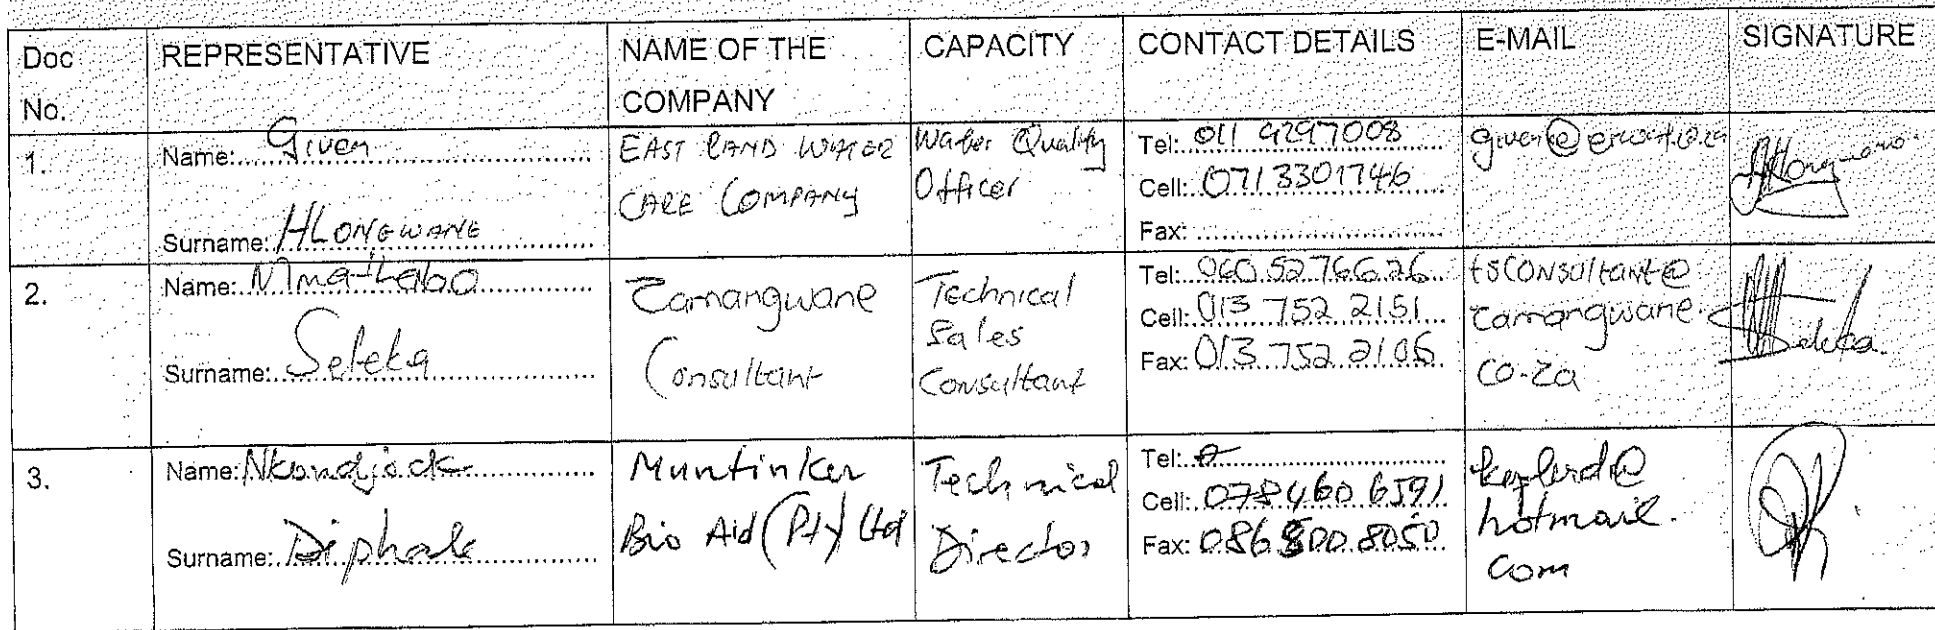 Doc No.
REPRESENTATIVE
NAME OF THE COMPANY
CAPACITY
CONTACT DETAILS
E-MAIL
SIGNATURE
1.
Name: Given
Surname: HLONGWANE
EAST RAND WATER
CARE COMPANY
Water Quality
Officer
Tel: 011 9297008
Cell: 0713301746
Fax:
2.
Name: Mmathabo
Surname: Seleka
Zamangwane
Consultant
Technical
Sales
Consultant
Tel: 060 5276626
Cell: 013 752 2151
Fax: 013 752 2106
tsconsultant@
zamangwane.
co.za
3.
Name: Nkondjock
Surname: Diphale
Muntinker
Bio Aid (Pty) Ltd
Technical
Director
Tel:
Cell: 078 460 6591
Fax: 086 500 8050
keplerd@
hotmail.
com